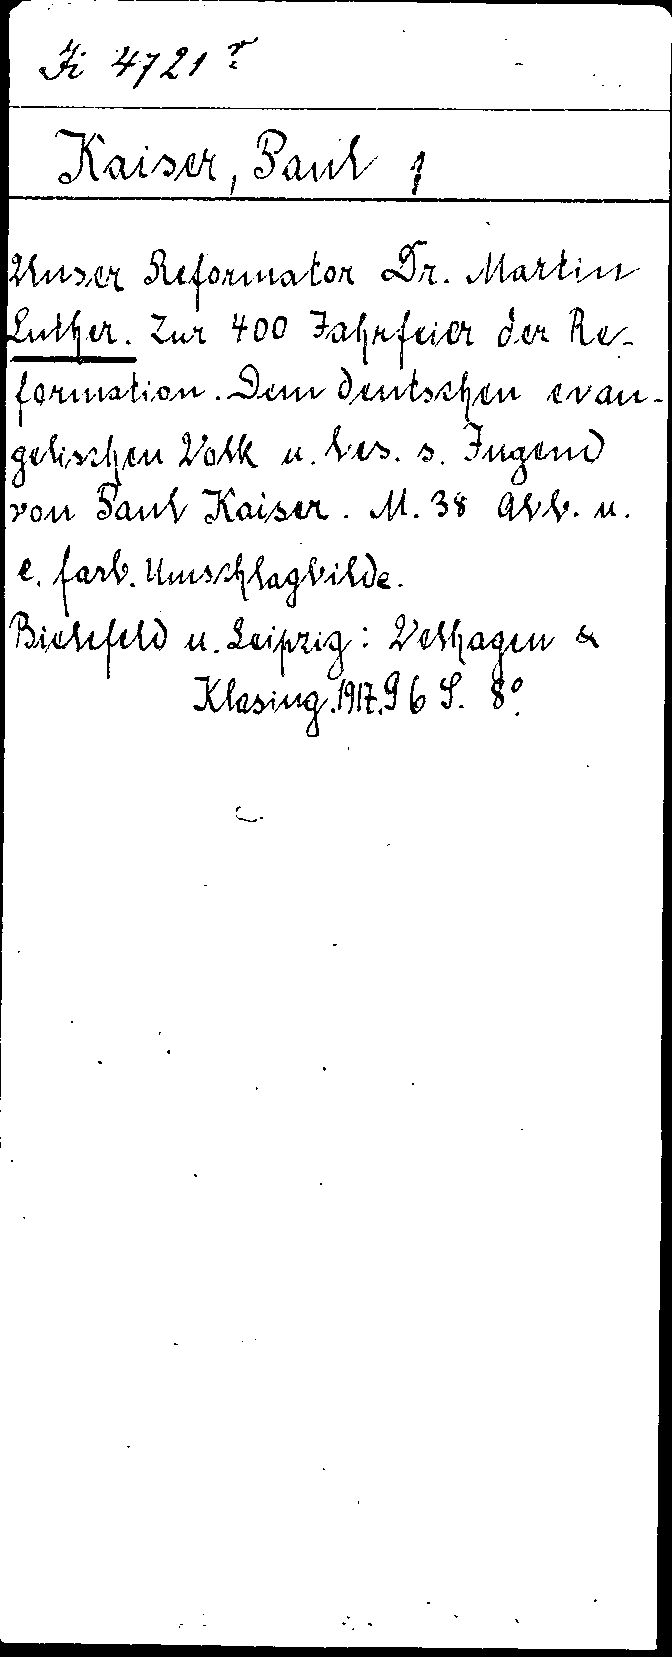 Fi 4721 r
Kaiser, Paul 1
Unser Reformator Dr. Martin
Luther. Zur 400 Jahrfeier der Re-
formation. Dem deutschen evan-
gelischen Volk u. bes. s. Jugend
von Paul Kaiser. M. 38 Abb. u.
e. farb. Umschlagbilde.
Bielefeld u. Leipzig: Velhagen &
Klasing. 1917. 96 S. 8°.